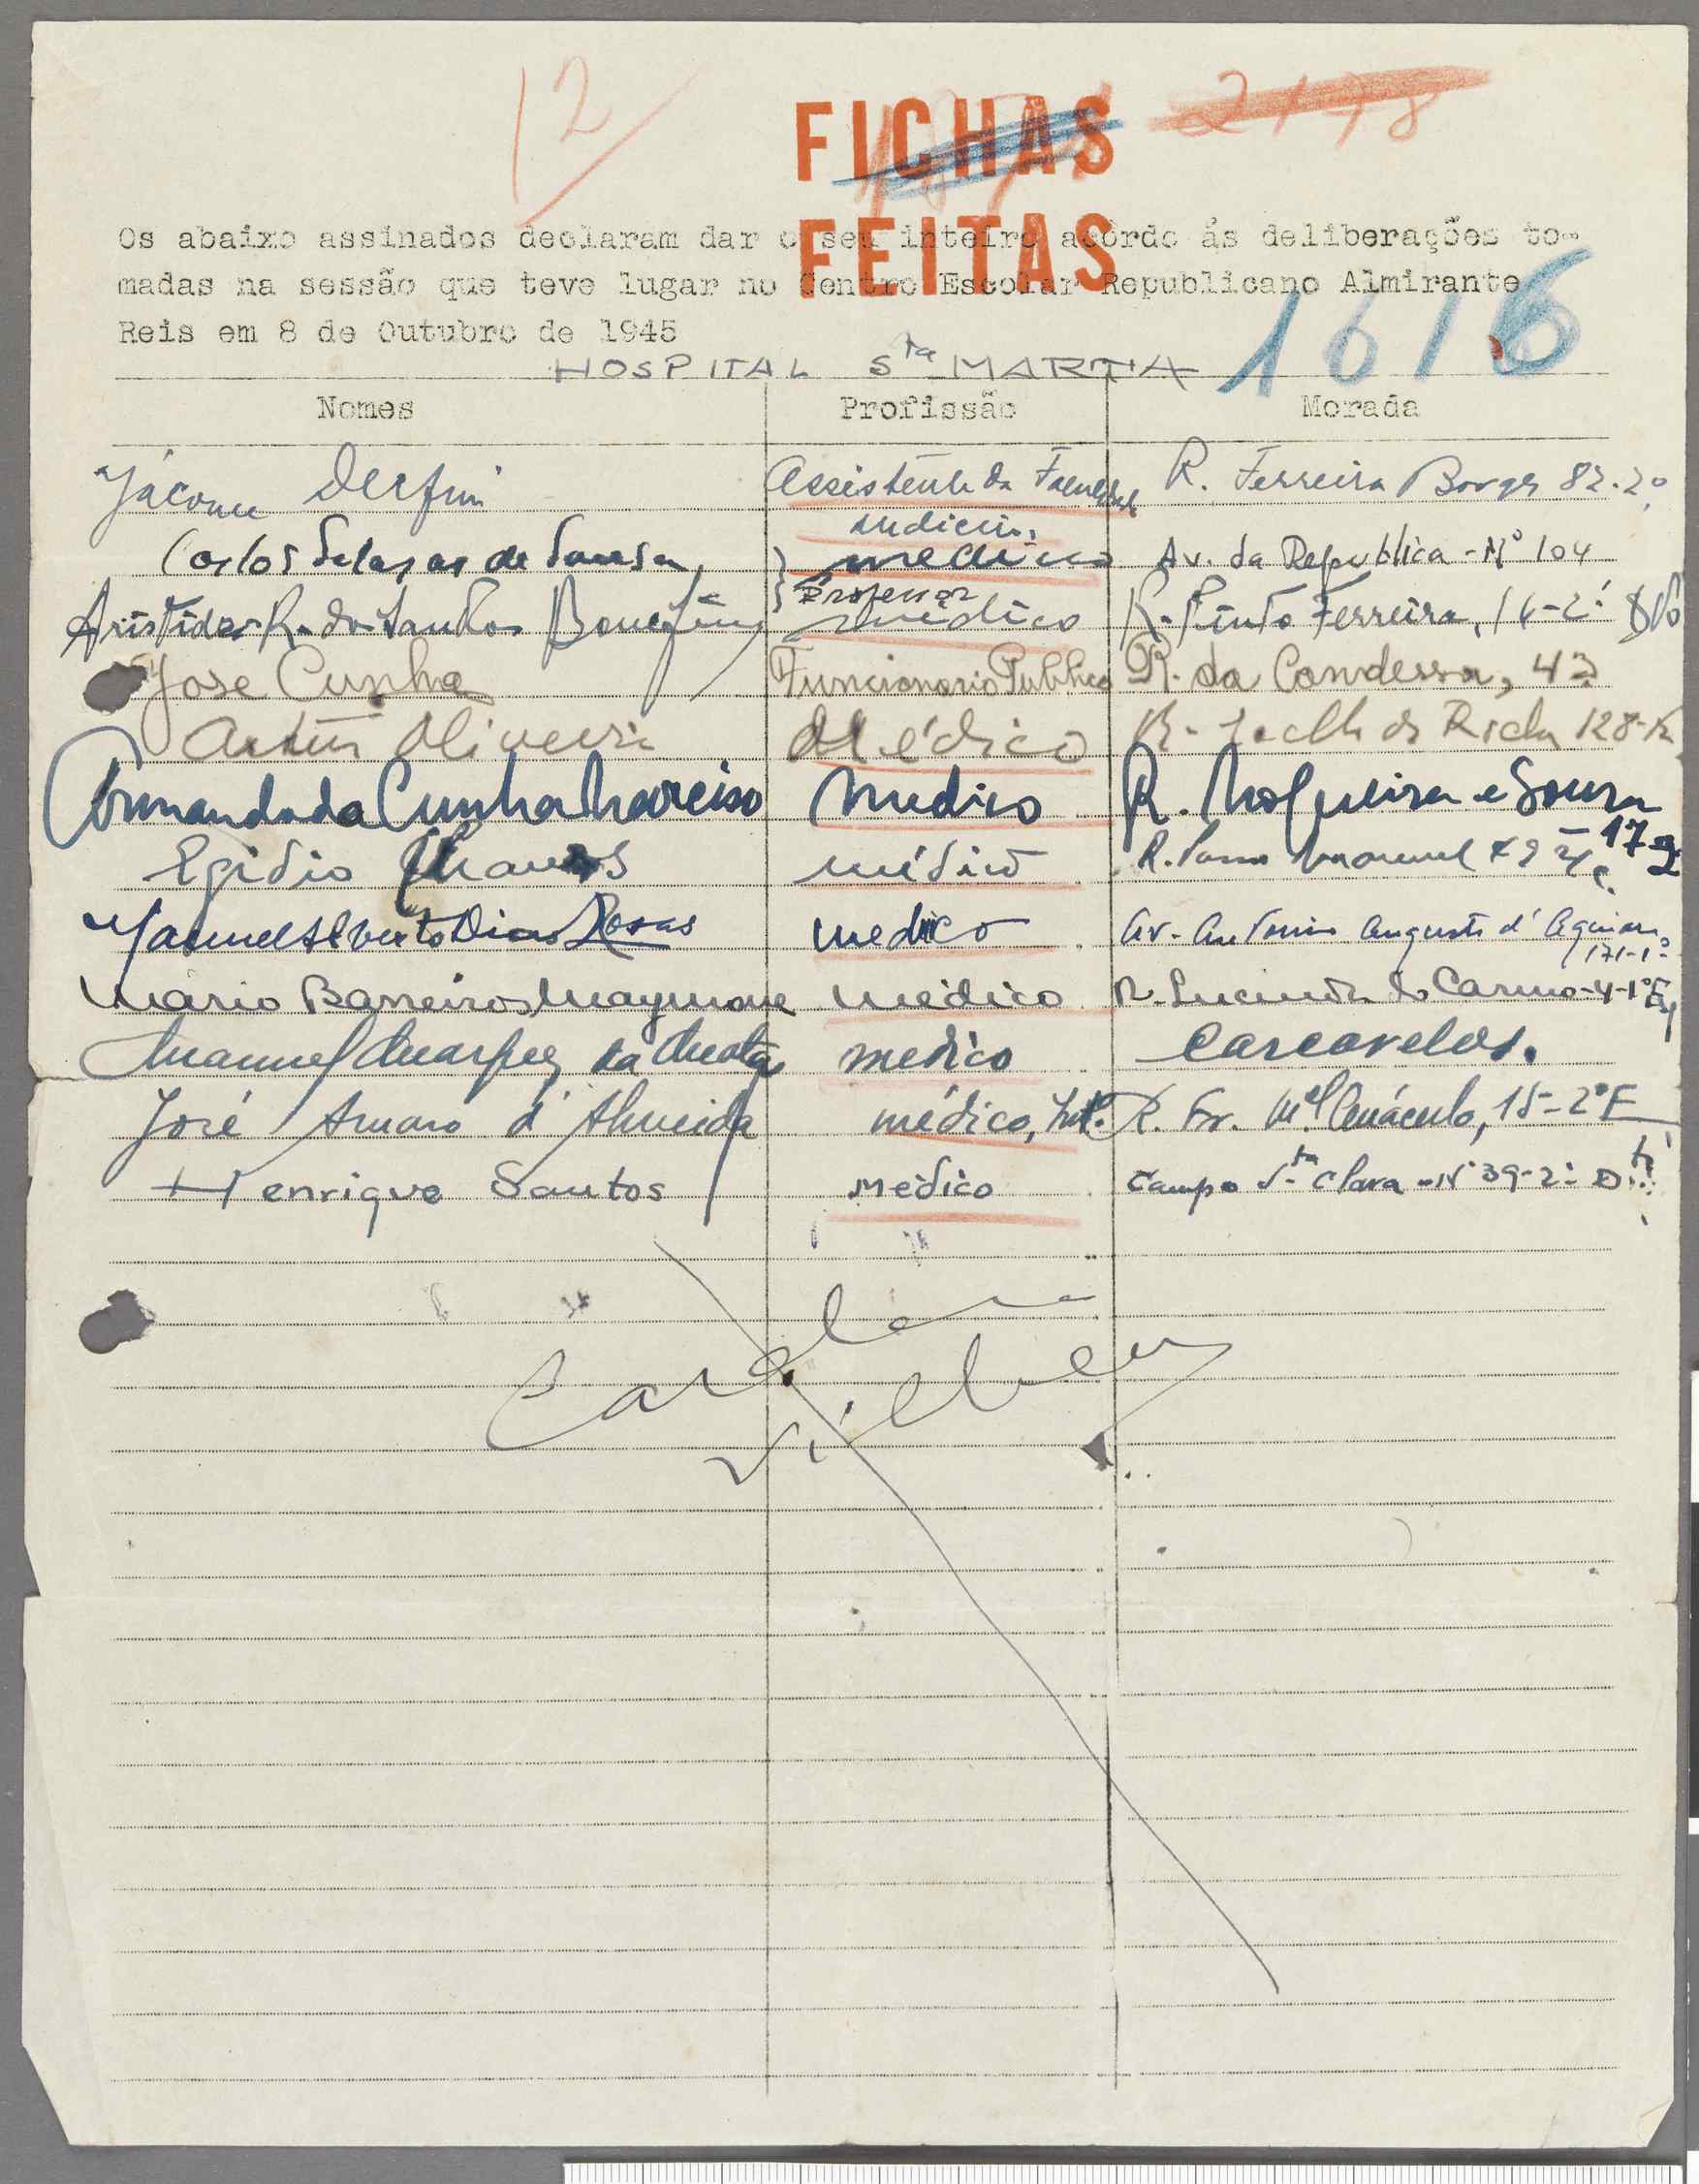 12
2178
FICHAS
FEITAS
Os abaixo assinados declaram dar o seu inteiro acôrdo ás deliberações to-
madas na sessão que teve lugar no Centro Escolar Republicano Almirante
Reis em 8 de Outubro de 1945
1616
HOSPITAL Sta MARTA
Nomes Profissão Morada
Jácome Delfim Assistente da Faculdade R. Ferreira Borges 82-2º
medicina
Carlos Salazar de Sousa medico Av. da Republica - Nº 104
Professor
Aristides R. dos Santos Bonefim médico R. Pinto Ferreira, 16-2º
José Cunha Funcionario Publico R. da Condessa, 42
Artur Oliveira Médico R. 128-
Armando da Cunha Narciso Medico R. Nogueira e Sousa
17-2
Egidio médico R. Passos Manuel
Manuel Alberto Dias Rosas medico Av. Antonio Augusto d'Aguiar
171-1º
Mário Barreiros Maymone Médico R. do Carmo-4-1º Esq
Manuel Marques da Mota medico Carcavelos.
José Amaro d'Almeida médico, Int. R. Fr. Mel Cenáculo, 15-2º E
Henrique Santos Médico Campo Sta Clara - Nº 39-2º Dto